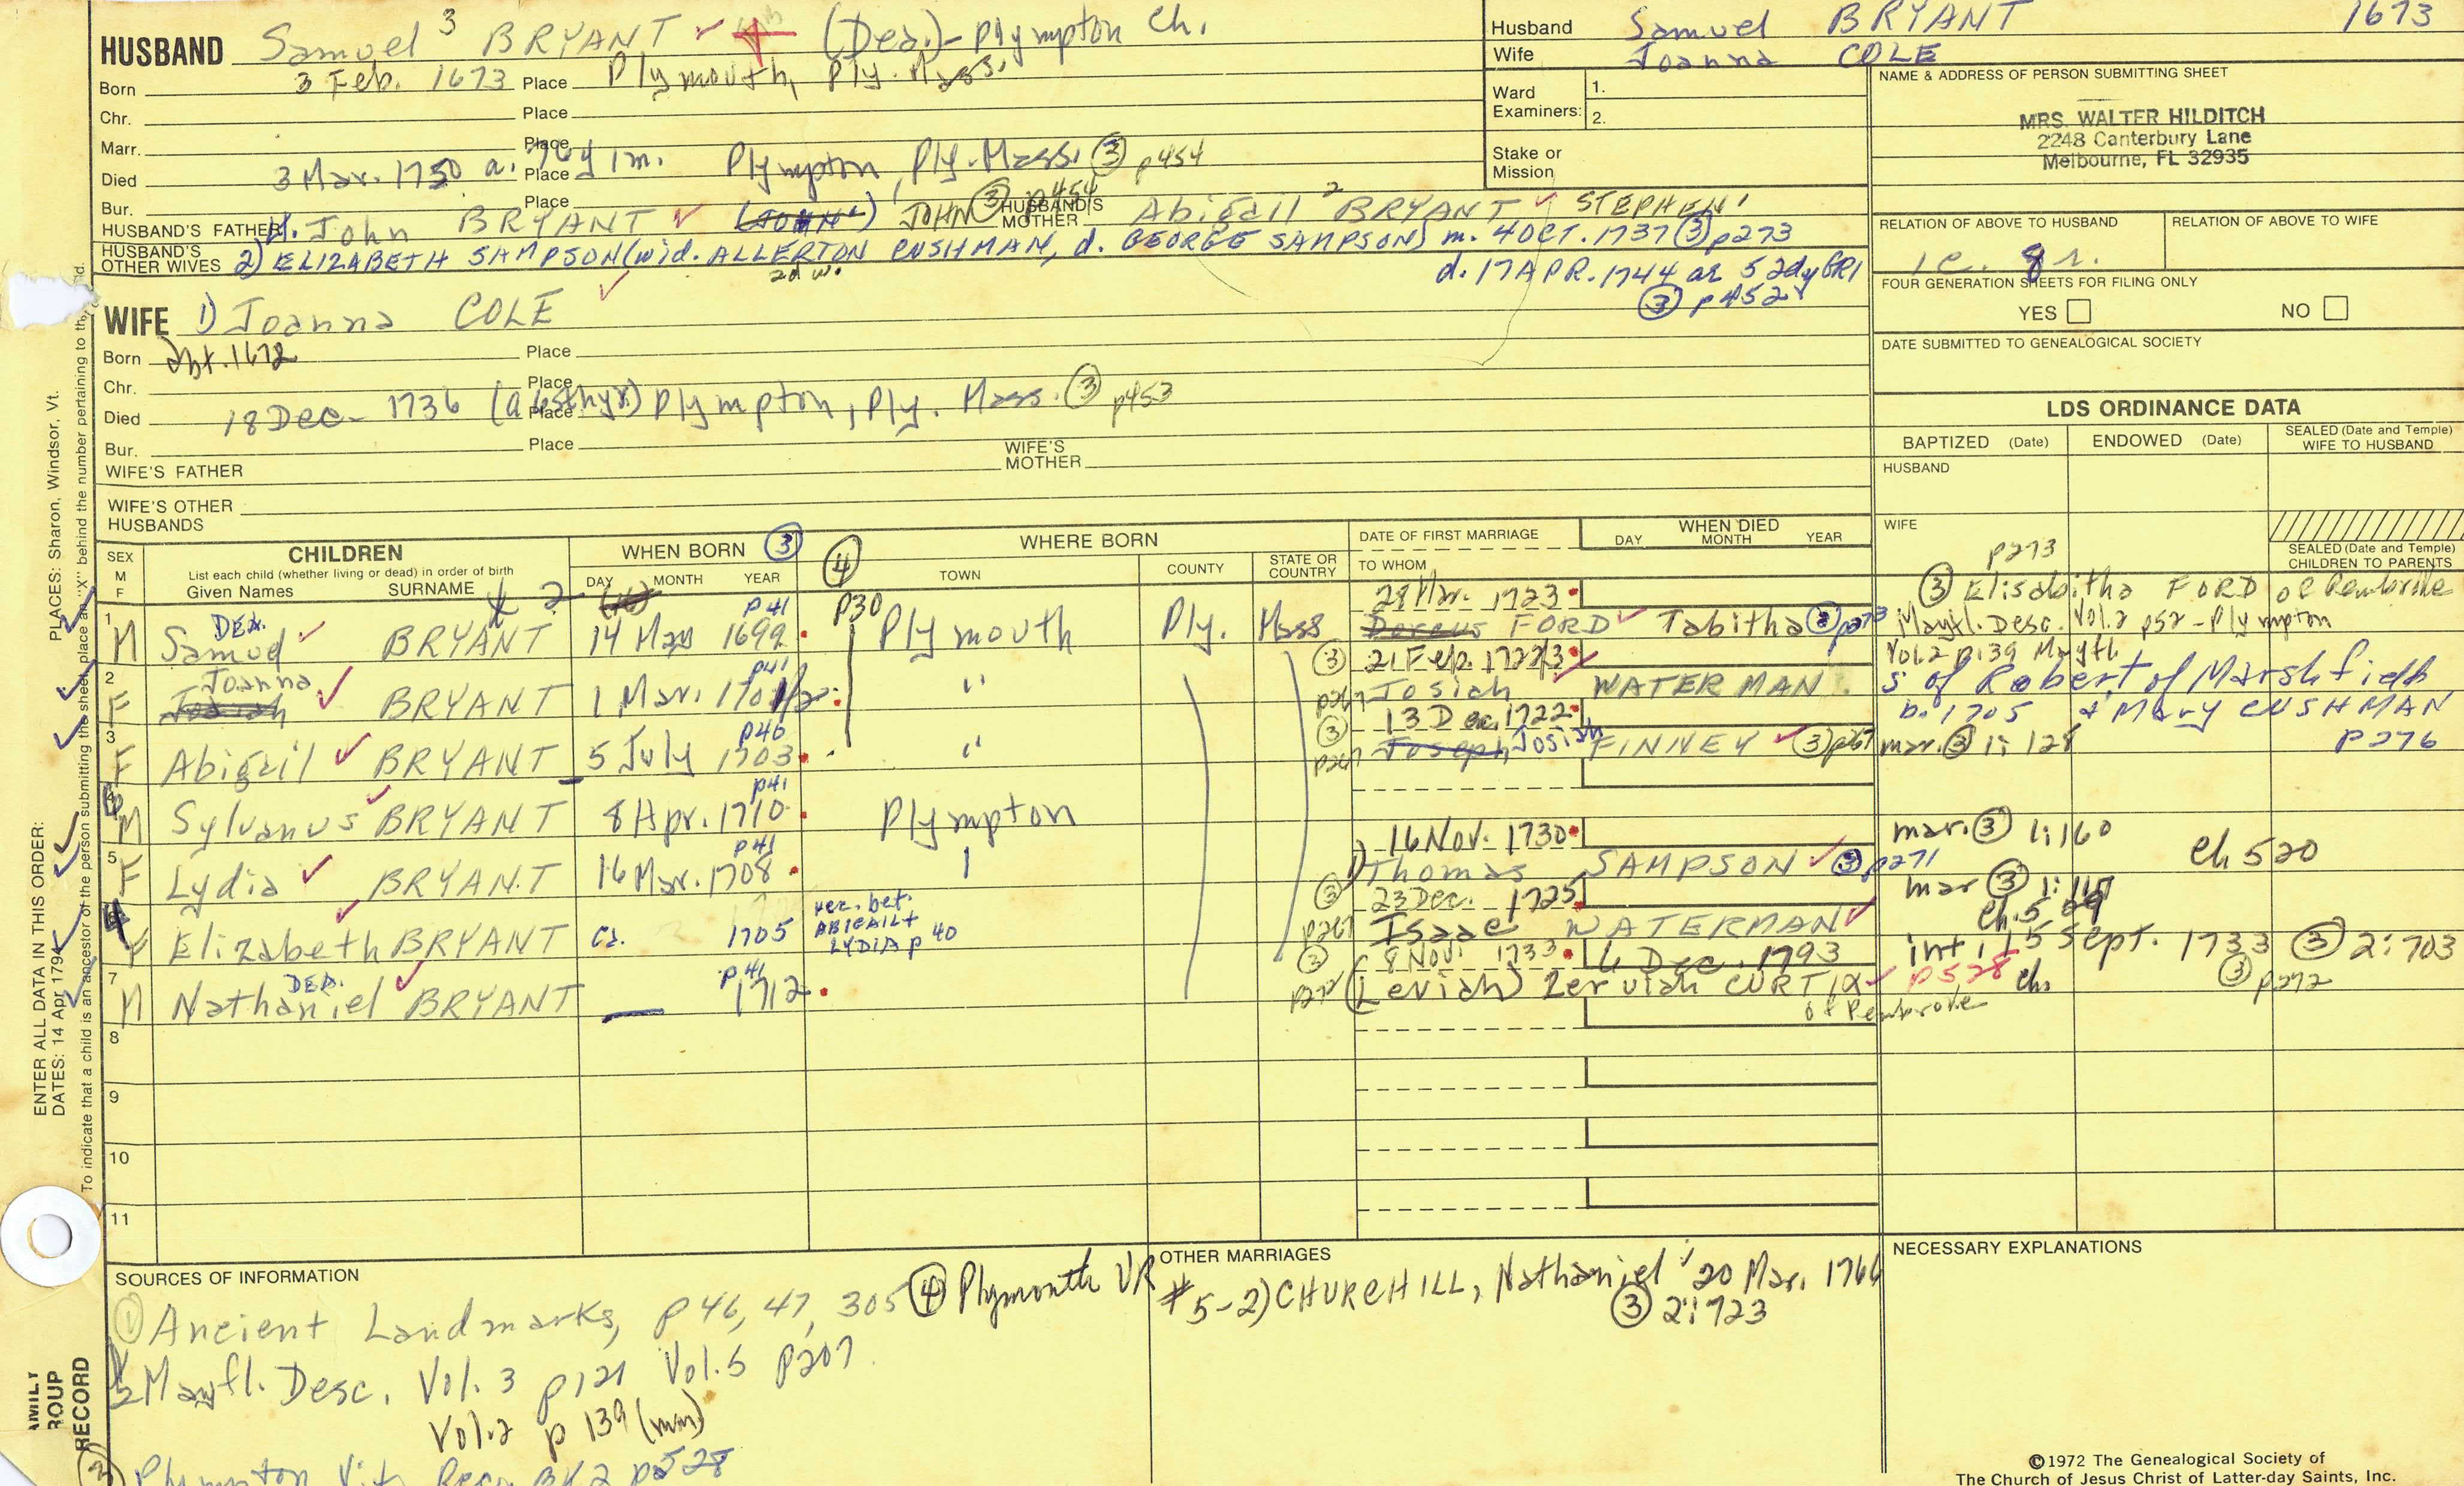 HUSBAND Samuel 3 BRYANT (Dea.) - Plympton Ch.
Born 3 Feb. 1673 Place Plymouth, Ply. Mass.
Chr. Place
Marr. Place
Died 3 Mar. 1750 a. 76y 1m. Place Plympton, Ply. Mass. ③ p454
Bur. Place ③ p454
HUSBAND'S FATHER John BRYANT (JOHN) JOHN HUSBAND'S MOTHER Abigail 2 BRYANT STEPHEN 1
HUSBAND'S OTHER WIVES 2) ELIZABETH SAMPSON (wid. ALLERTON CUSHMAN, d. GEORGE SAMPSON) m. 4 OCT. 1737 ③ p273
2d w.
d. 17 APR. 1744 ③ p452
WIFE 1) Joanna COLE
Born abt. 1672 Place
Chr. Place
Died 18 Dec 1736 Place Plympton, Ply. Mass. ③ p453
Bur. Place
WIFE'S FATHER WIFE'S MOTHER
WIFE'S OTHER HUSBANDS
Husband Samuel BRYANT 1673
Wife Joanna COLE
Ward Examiners: 1.
2.
Stake or Mission
NAME & ADDRESS OF PERSON SUBMITTING SHEET
MRS. WALTER HILDITCH
2248 Canterbury Lane
Melbourne, FL 32935
RELATION OF ABOVE TO HUSBAND RELATION OF ABOVE TO WIFE
FOUR GENERATION SHEETS FOR FILING ONLY
YES NO
DATE SUBMITTED TO GENEALOGICAL SOCIETY
LDS ORDINANCE DATA
BAPTIZED (Date) ENDOWED (Date) SEALED (Date and Temple) WIFE TO HUSBAND
HUSBAND
WIFE
SEALED (Date and Temple) CHILDREN TO PARENTS
SEX M F
CHILDREN
List each child (whether living or dead) in order of birth
Given Names SURNAME
WHEN BORN ③
DAY MONTH YEAR
④ p30
WHERE BORN
TOWN COUNTY STATE OR COUNTRY
DATE OF FIRST MARRIAGE
TO WHOM
WHEN DIED
DAY MONTH YEAR
1 M DEA. Samuel BRYANT 14 May 1699 p41 Plymouth Ply. Mass 28 Mar. 1723 Dorcus FORD Tabitha ③ p273
p273
③ Elisabitha FORD of Pembroke
Mayfl. Desc. Vol. 2 p52 - Plympton
Vol. 2 p139
2 F Joanna Josiah BRYANT 1 Mar. 1701/2 p41 " ③ p267 21 Feb. 1722/3 Josiah WATERMAN
s of Robert of Marshfield
b. 1705 & Mary CUSHMAN
p276
3 F Abigail BRYANT 5 July 1703 p40 " ③ p267 13 Dec. 1722 Joseph Josiah FINNEY ③ p267 mar. ③ 1: 128
M Sylvanus BRYANT 8 Apr. 1710 p41 Plympton
5 F Lydia BRYANT 16 Mar. 1708 p41 16 Nov. 1730 1) Thomas SAMPSON ③ p271 mar. ③ 1:160 ch 520
4 F Elizabeth BRYANT ca. 1705 rec. bet. ABIGAIL + LYDIA p 40 ③ p267 23 Dec. 1725 Isaac WATERMAN mar ③
7 M DEA. Nathaniel BRYANT 1712 p41 ③ 8 Nov. 1733 6 Dec. 1793 (Leviah) Zerviah CURTIS of Pembroke p528 ch. int. 15 Sept. 1733 ③ 2:703
③ p272
8
9
10
11
SOURCES OF INFORMATION
① Ancient Landmarks, p 46, 47, 305 ④ Plymouth VR
2 Mayfl. Desc. Vol. 3 p121 Vol. 5 p207
Vol. 2 p 139
③ Plympton Vit. Recs. BK 2 p528
OTHER MARRIAGES
#5-2) CHURCHILL, Nathaniel 20 Mar. 1766
③ 2:723
NECESSARY EXPLANATIONS
©1972 The Genealogical Society of
The Church of Jesus Christ of Latter-day Saints, Inc.
ENTER ALL DATA IN THIS ORDER:
DATES: 14 Apr 1794
PLACES: Sharon, Windsor, Vt.
To indicate that a child is an ancestor of the person submitting the sheet, place an "X" behind the number pertaining to
RECORD